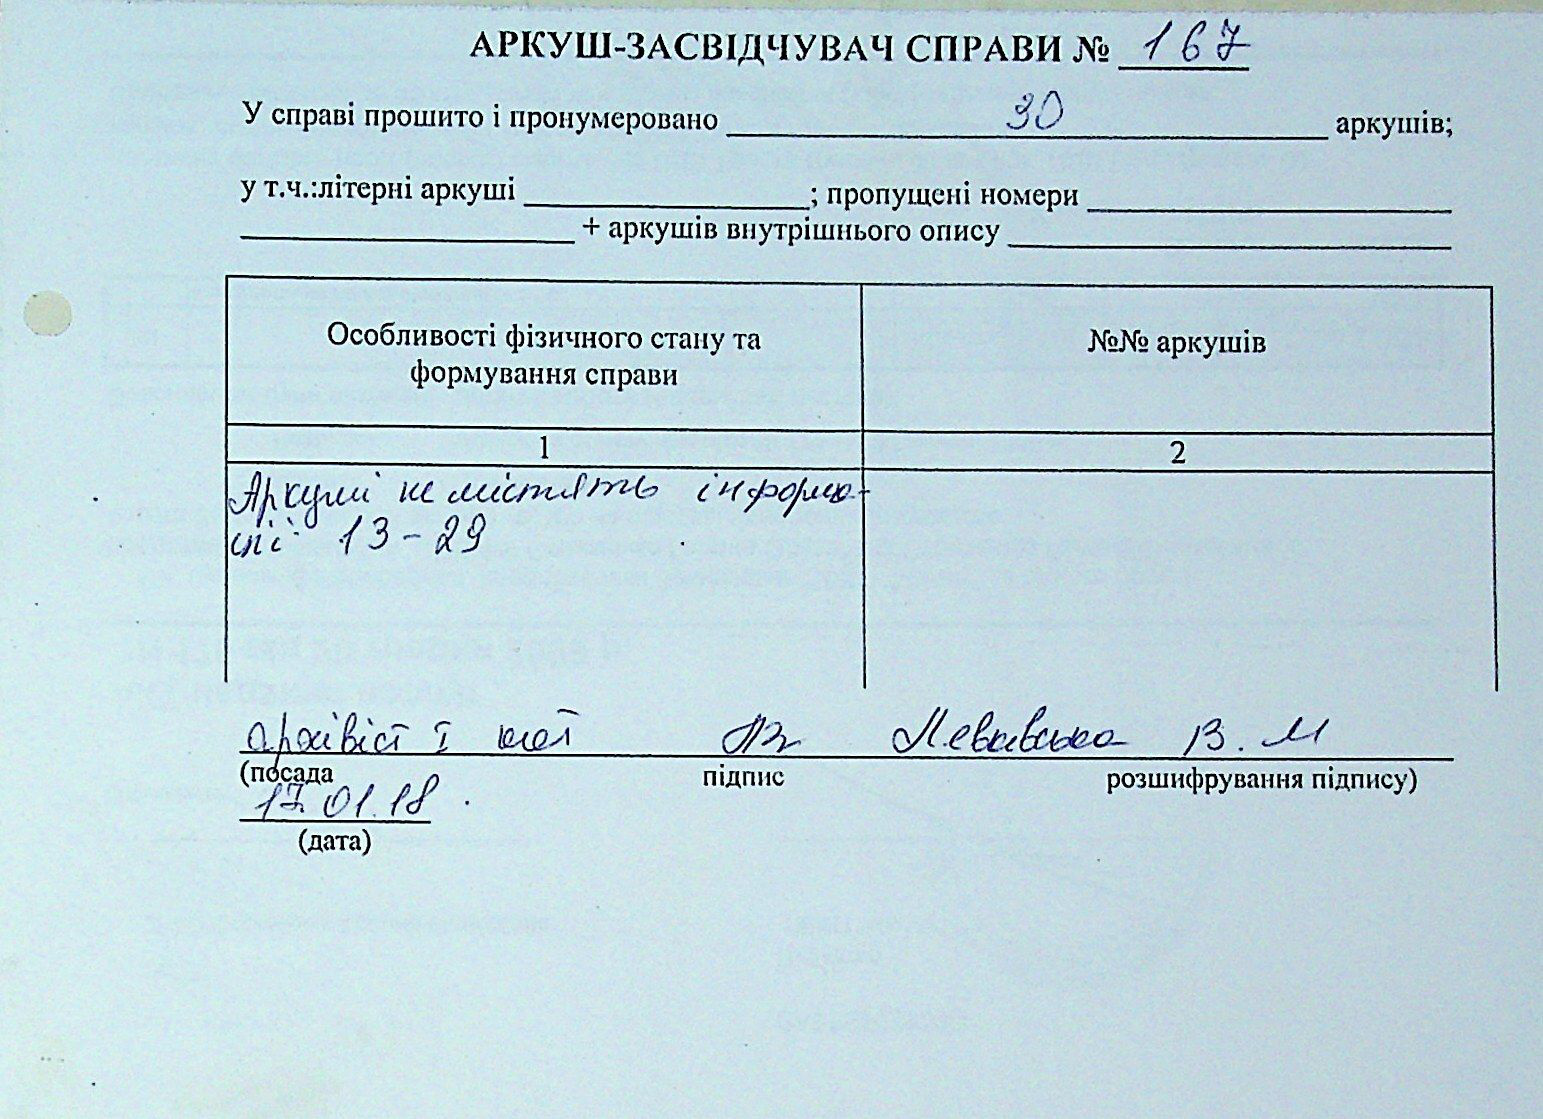 АРКУШ-ЗАСВІДЧУВАЧ СПРАВИ № 167
У справі прошито і пронумеровано 30 аркушів;
у т.ч.:літерні аркуші ; пропущені номери
+ аркушів внутрішнього опису
Особливості фізичного стану та
формування справи
№№ аркушів
1 2
Аркуші не містять інформа-
ції 13-29
архівіст І кат В. М
(посада підпис розшифрування підпису)
17.01.18
(дата)